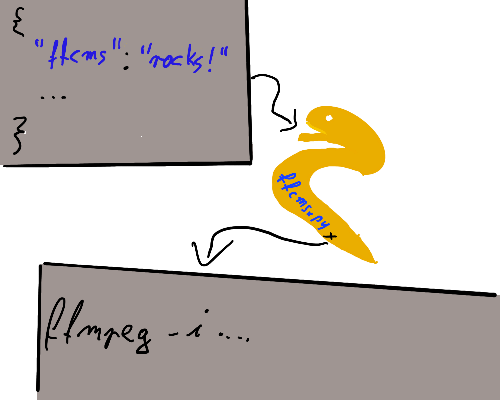 {
"ffcms": "rocks!"
...
}
ffcms.py
ffmpeg -i ...